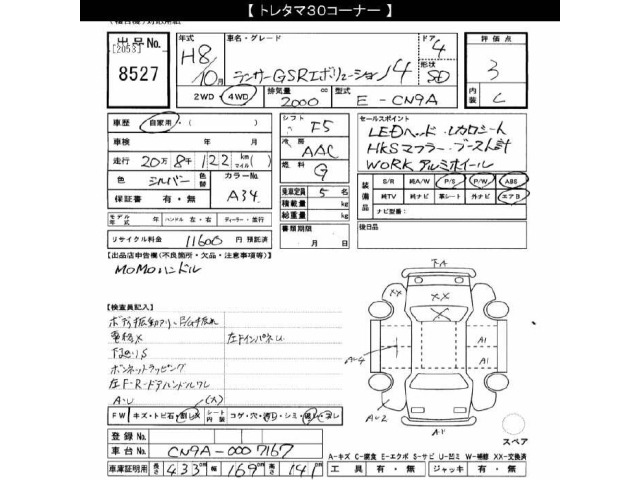 【 トレタマ30コーナー 】
出品No.
[2053]
8527
年式
H8
10月
車名・グレード
ランサーGSRエボリューション4
ドア
4
形状
SD
評価点
3
内装
C
2WD・4WD
排気量
2000
cc
型式
E-CN9A
車歴
自家用・( )
車検
年 月
走行 20万8千122 km(マイル)
色 シルバー 色替
カラーNo. A34
保証書 有・無
シフト F5
冷房 AAC
燃料 G
乗車定員 5 名
積載量 kg
総重量 kg
セールスポイント
LEDヘッド・レカロシート
HKSマフラー・ブースト計
WORKアルミホイール
装備品
S/R 純A/W P/S P/W ABS
純TV 純ナビ 革シート 外ナビ エアB
ナビ型番:
モデル年式 年 ハンドル 左・右 ディーラー・並行
リサイクル料金 11600 円 預託済
書類期限
月 日
後日品
【出品店申告欄(不良箇所・欠品・注意事項等)】
MOMOハンドル
【検査員記入】
下回りS
ボンネットラッピング
左F・R-ドアハンドルワレ
左FインパネU
A・U
(大)
FW
キズ・トビ石・割レX
シート内装
コゲ・穴・汚レ・シミ
TA
XX
XX
A-4
A1
A1
A-2
A-1
スペア
登録No.
車台No.
CN9A-0007167
A-キズ C-腐食 E-エクボ S-サビ U-凹ミ W-補修 XX-交換済
車庫証明用 長さ 433 cm 幅 169 cm 高さ 141 cm
工具 有・無 ジャッキ 有・無